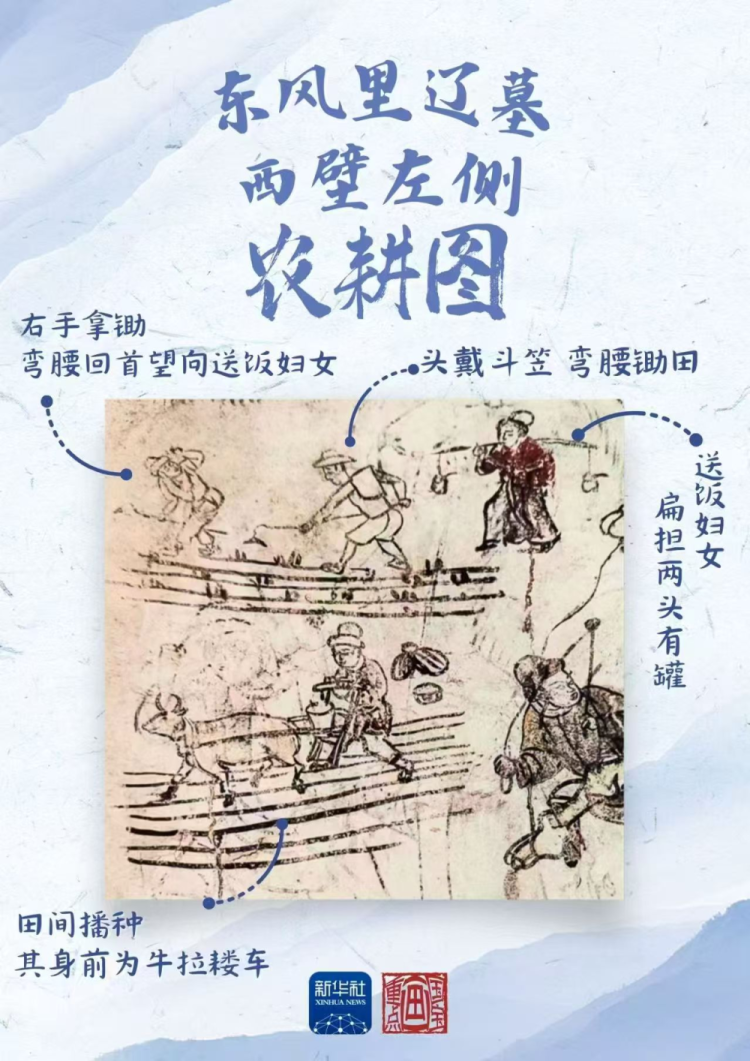 东风里辽墓
西壁左侧
农耕图
右手拿锄
弯腰回首望向送饭妇女
头戴斗笠 弯腰锄田
送饭妇女
扁担两头有罐
田间播种
其身前为牛拉耧车
新华社
XINHUA NEWS